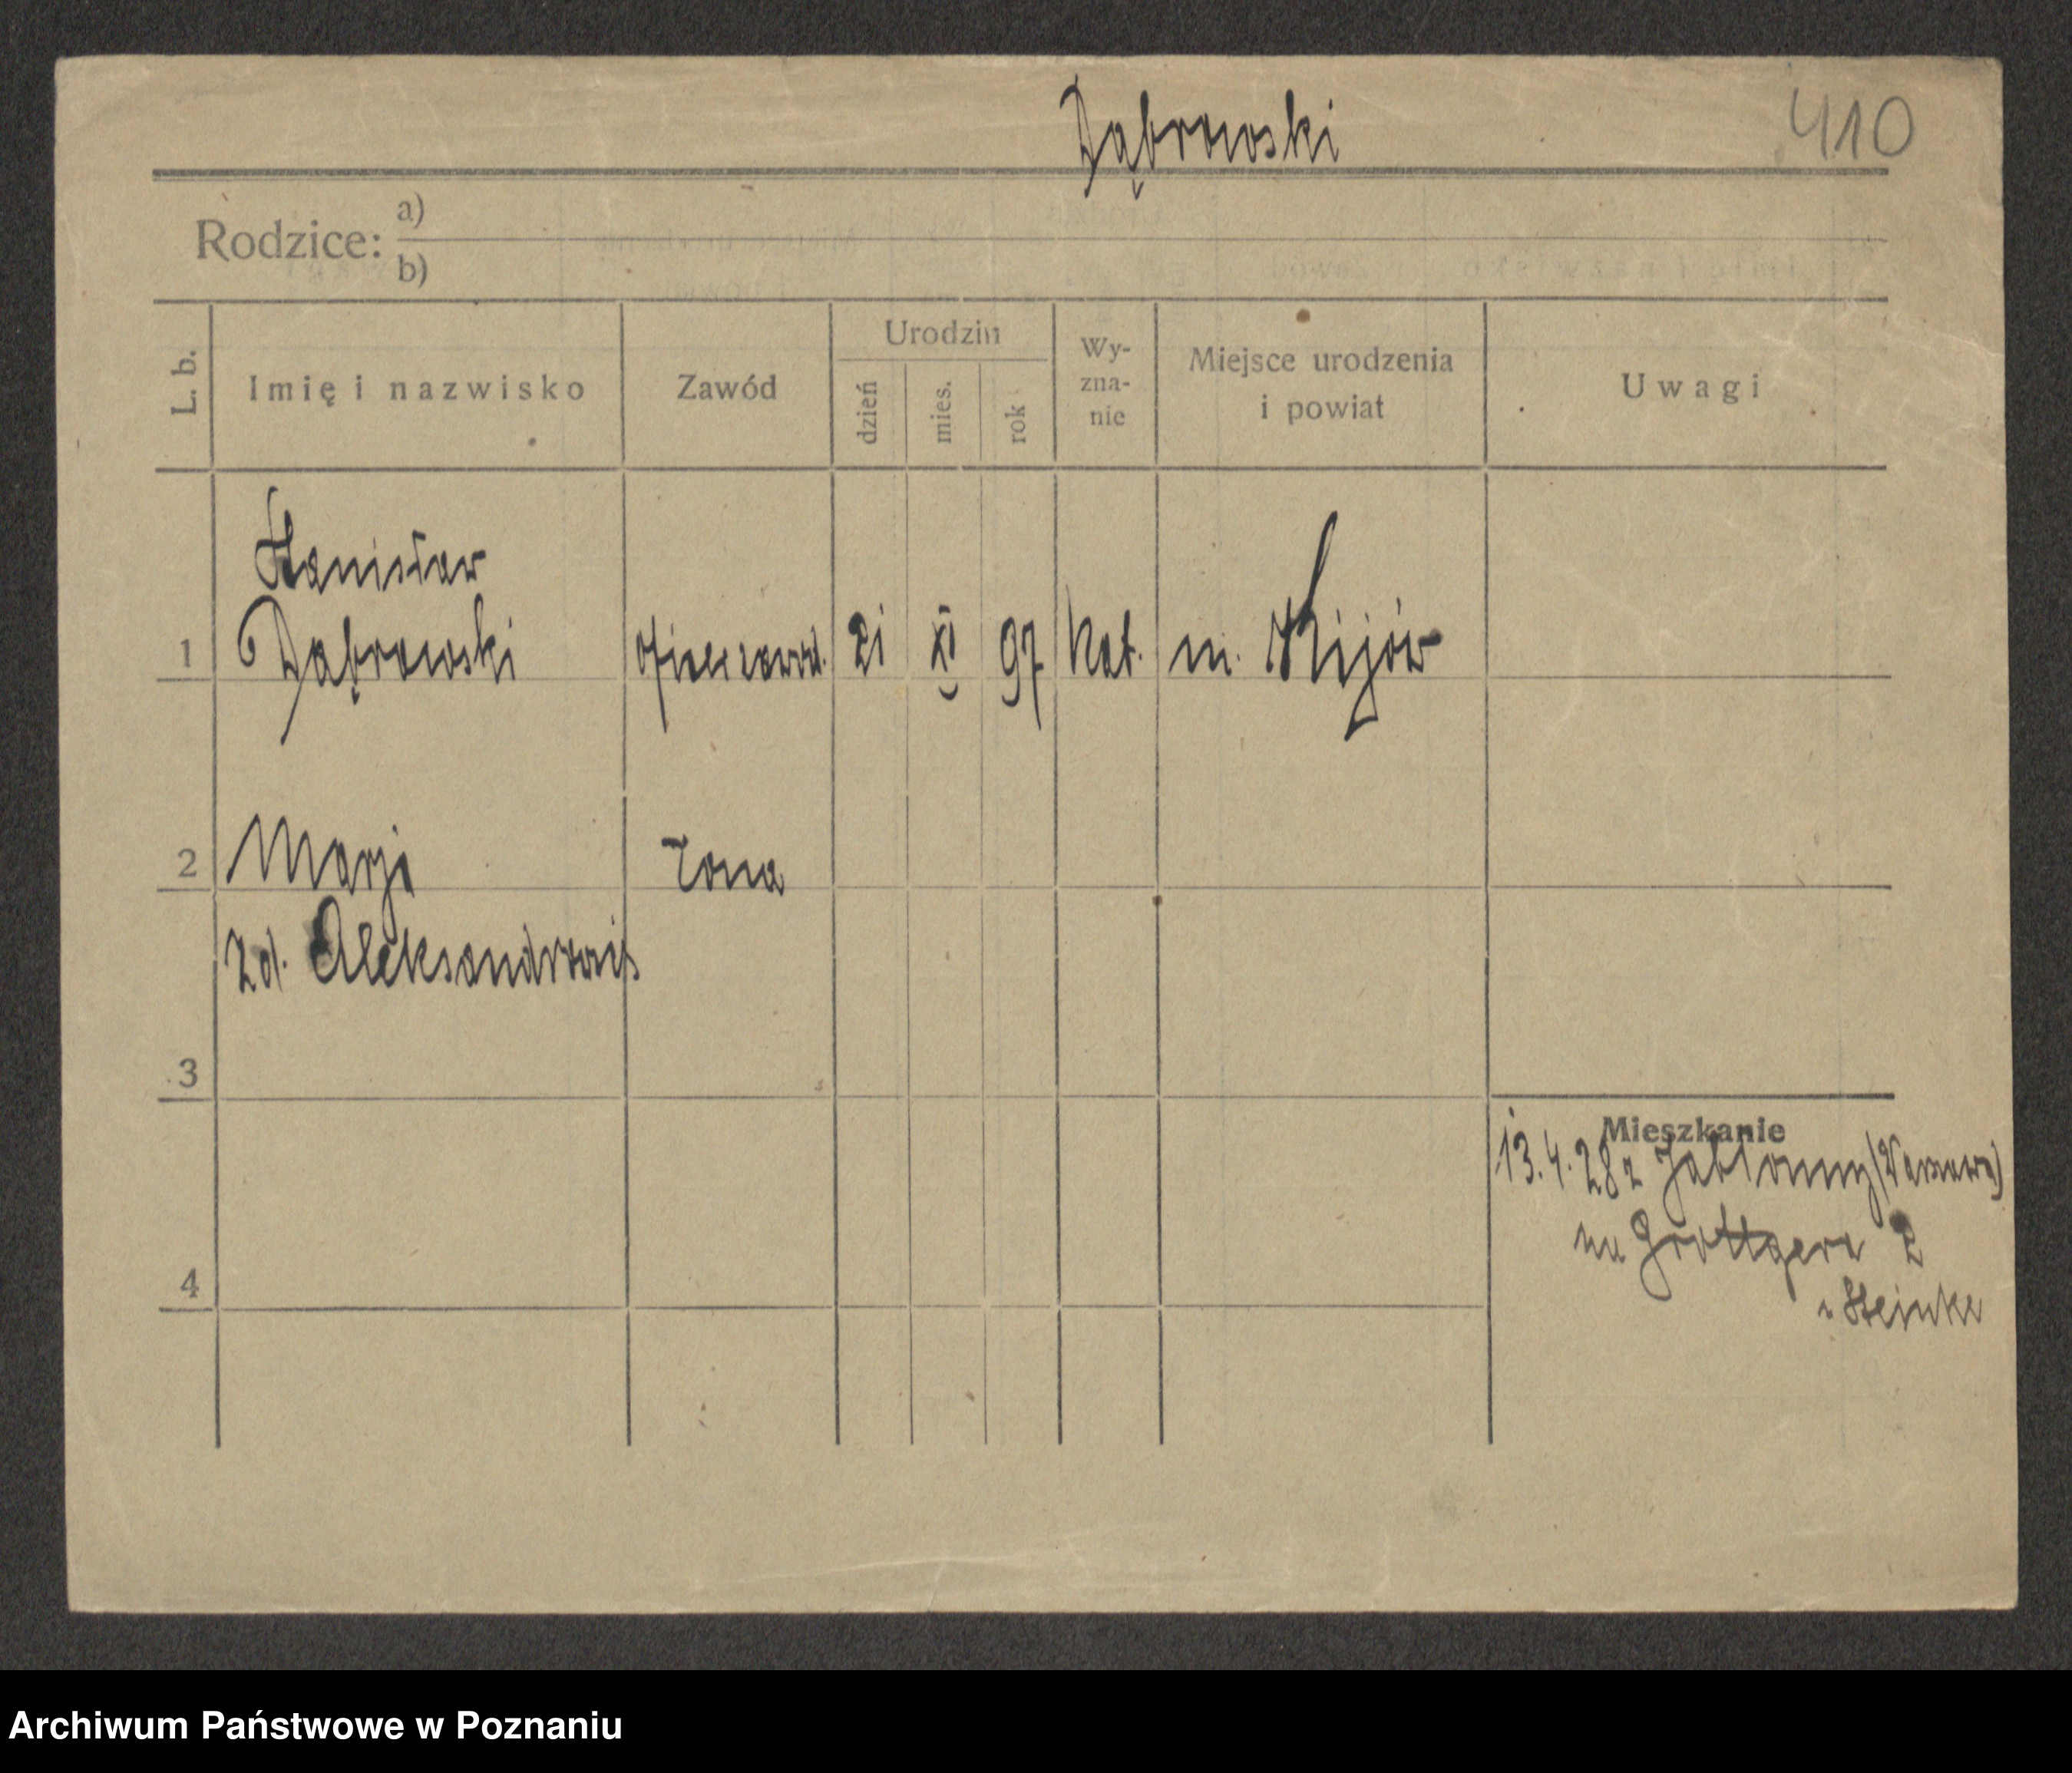 Dąbrowski
410
Rodzice: a)
b)
L. b.
Imię i nazwisko
Zawód
Urodzin
dzień
mies.
rok
Wy-
zna-
nie
Miejsce urodzenia
i powiat
Uwagi
Stanisław
1 Dąbrowski oficer zawod. 21 XI 97 kat. m. Kijów
2 Marja żona
zd.
3
Mieszkanie
13.4.28 z Jabłonny (Warszawa)
na Grottgera 2
4
u Steinke
Archiwum Państwowe w Poznaniu